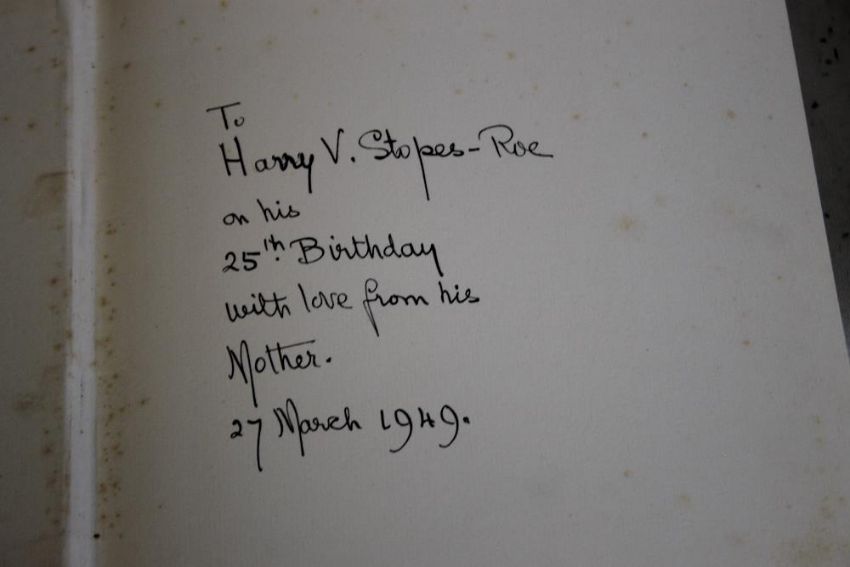 To
Harry V. Stopes-Roe
on his
25th. Birthday
with love from his
Mother.
27 March 1949.